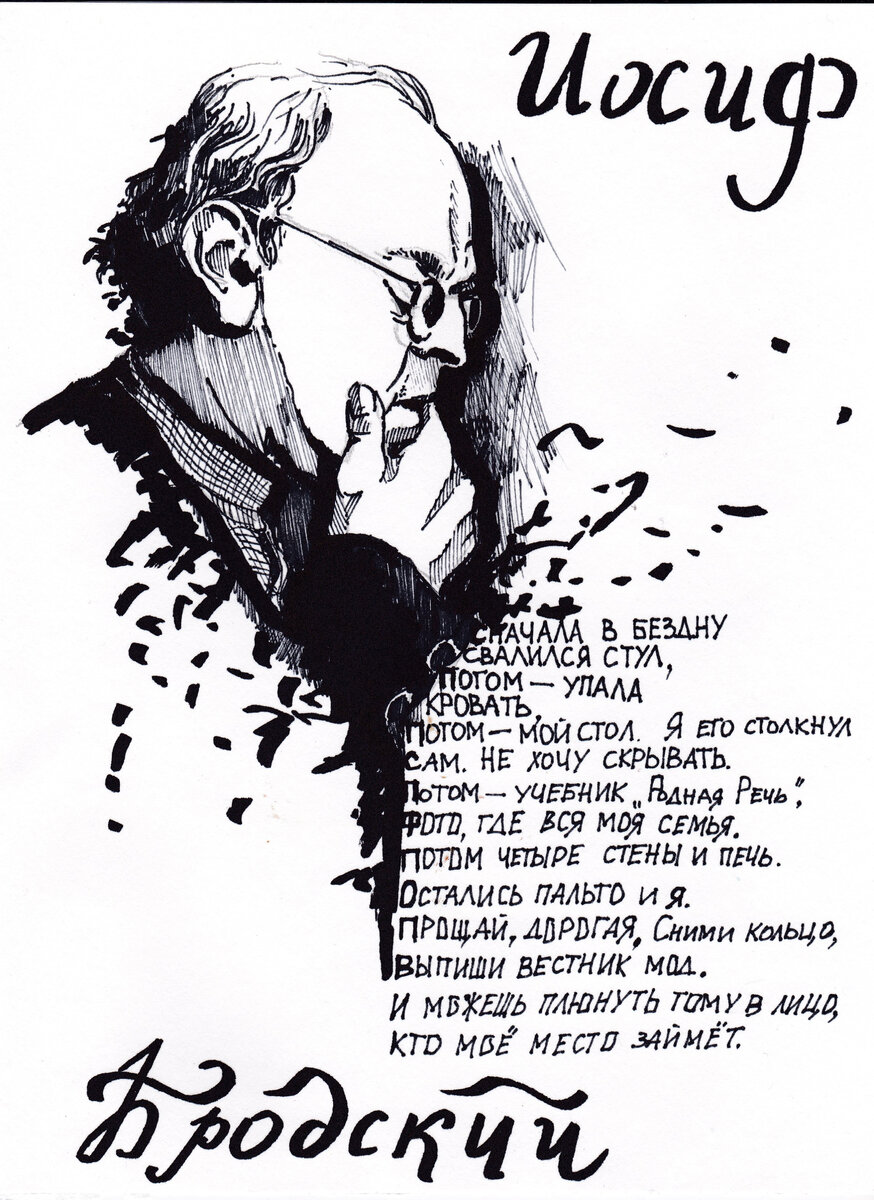 Иосиф
СНАЧАЛА В БЕЗДНУ
СВАЛИЛСЯ СТУЛ,
ПОТОМ — УПАЛА
КРОВАТЬ,
ПОТОМ — МОЙ СТОЛ. Я ЕГО СТОЛКНУЛ
САМ. НЕ ХОЧУ СКРЫВАТЬ.
ПОТОМ — УЧЕБНИК „РОДНАЯ РЕЧЬ”,
ФОТО, ГДЕ ВСЯ МОЯ СЕМЬЯ.
ПОТОМ ЧЕТЫРЕ СТЕНЫ И ПЕЧЬ.
ОСТАЛИСЬ ПАЛЬТО И Я.
ПРОЩАЙ, ДОРОГАЯ. СНИМИ КОЛЬЦО,
ВЫПИШИ ВЕСТНИК МОД.
И МОЖЕШЬ ПЛЮНУТЬ ТОМУ В ЛИЦО,
КТО МОЁ МЕСТО ЗАЙМЁТ.
Бродский